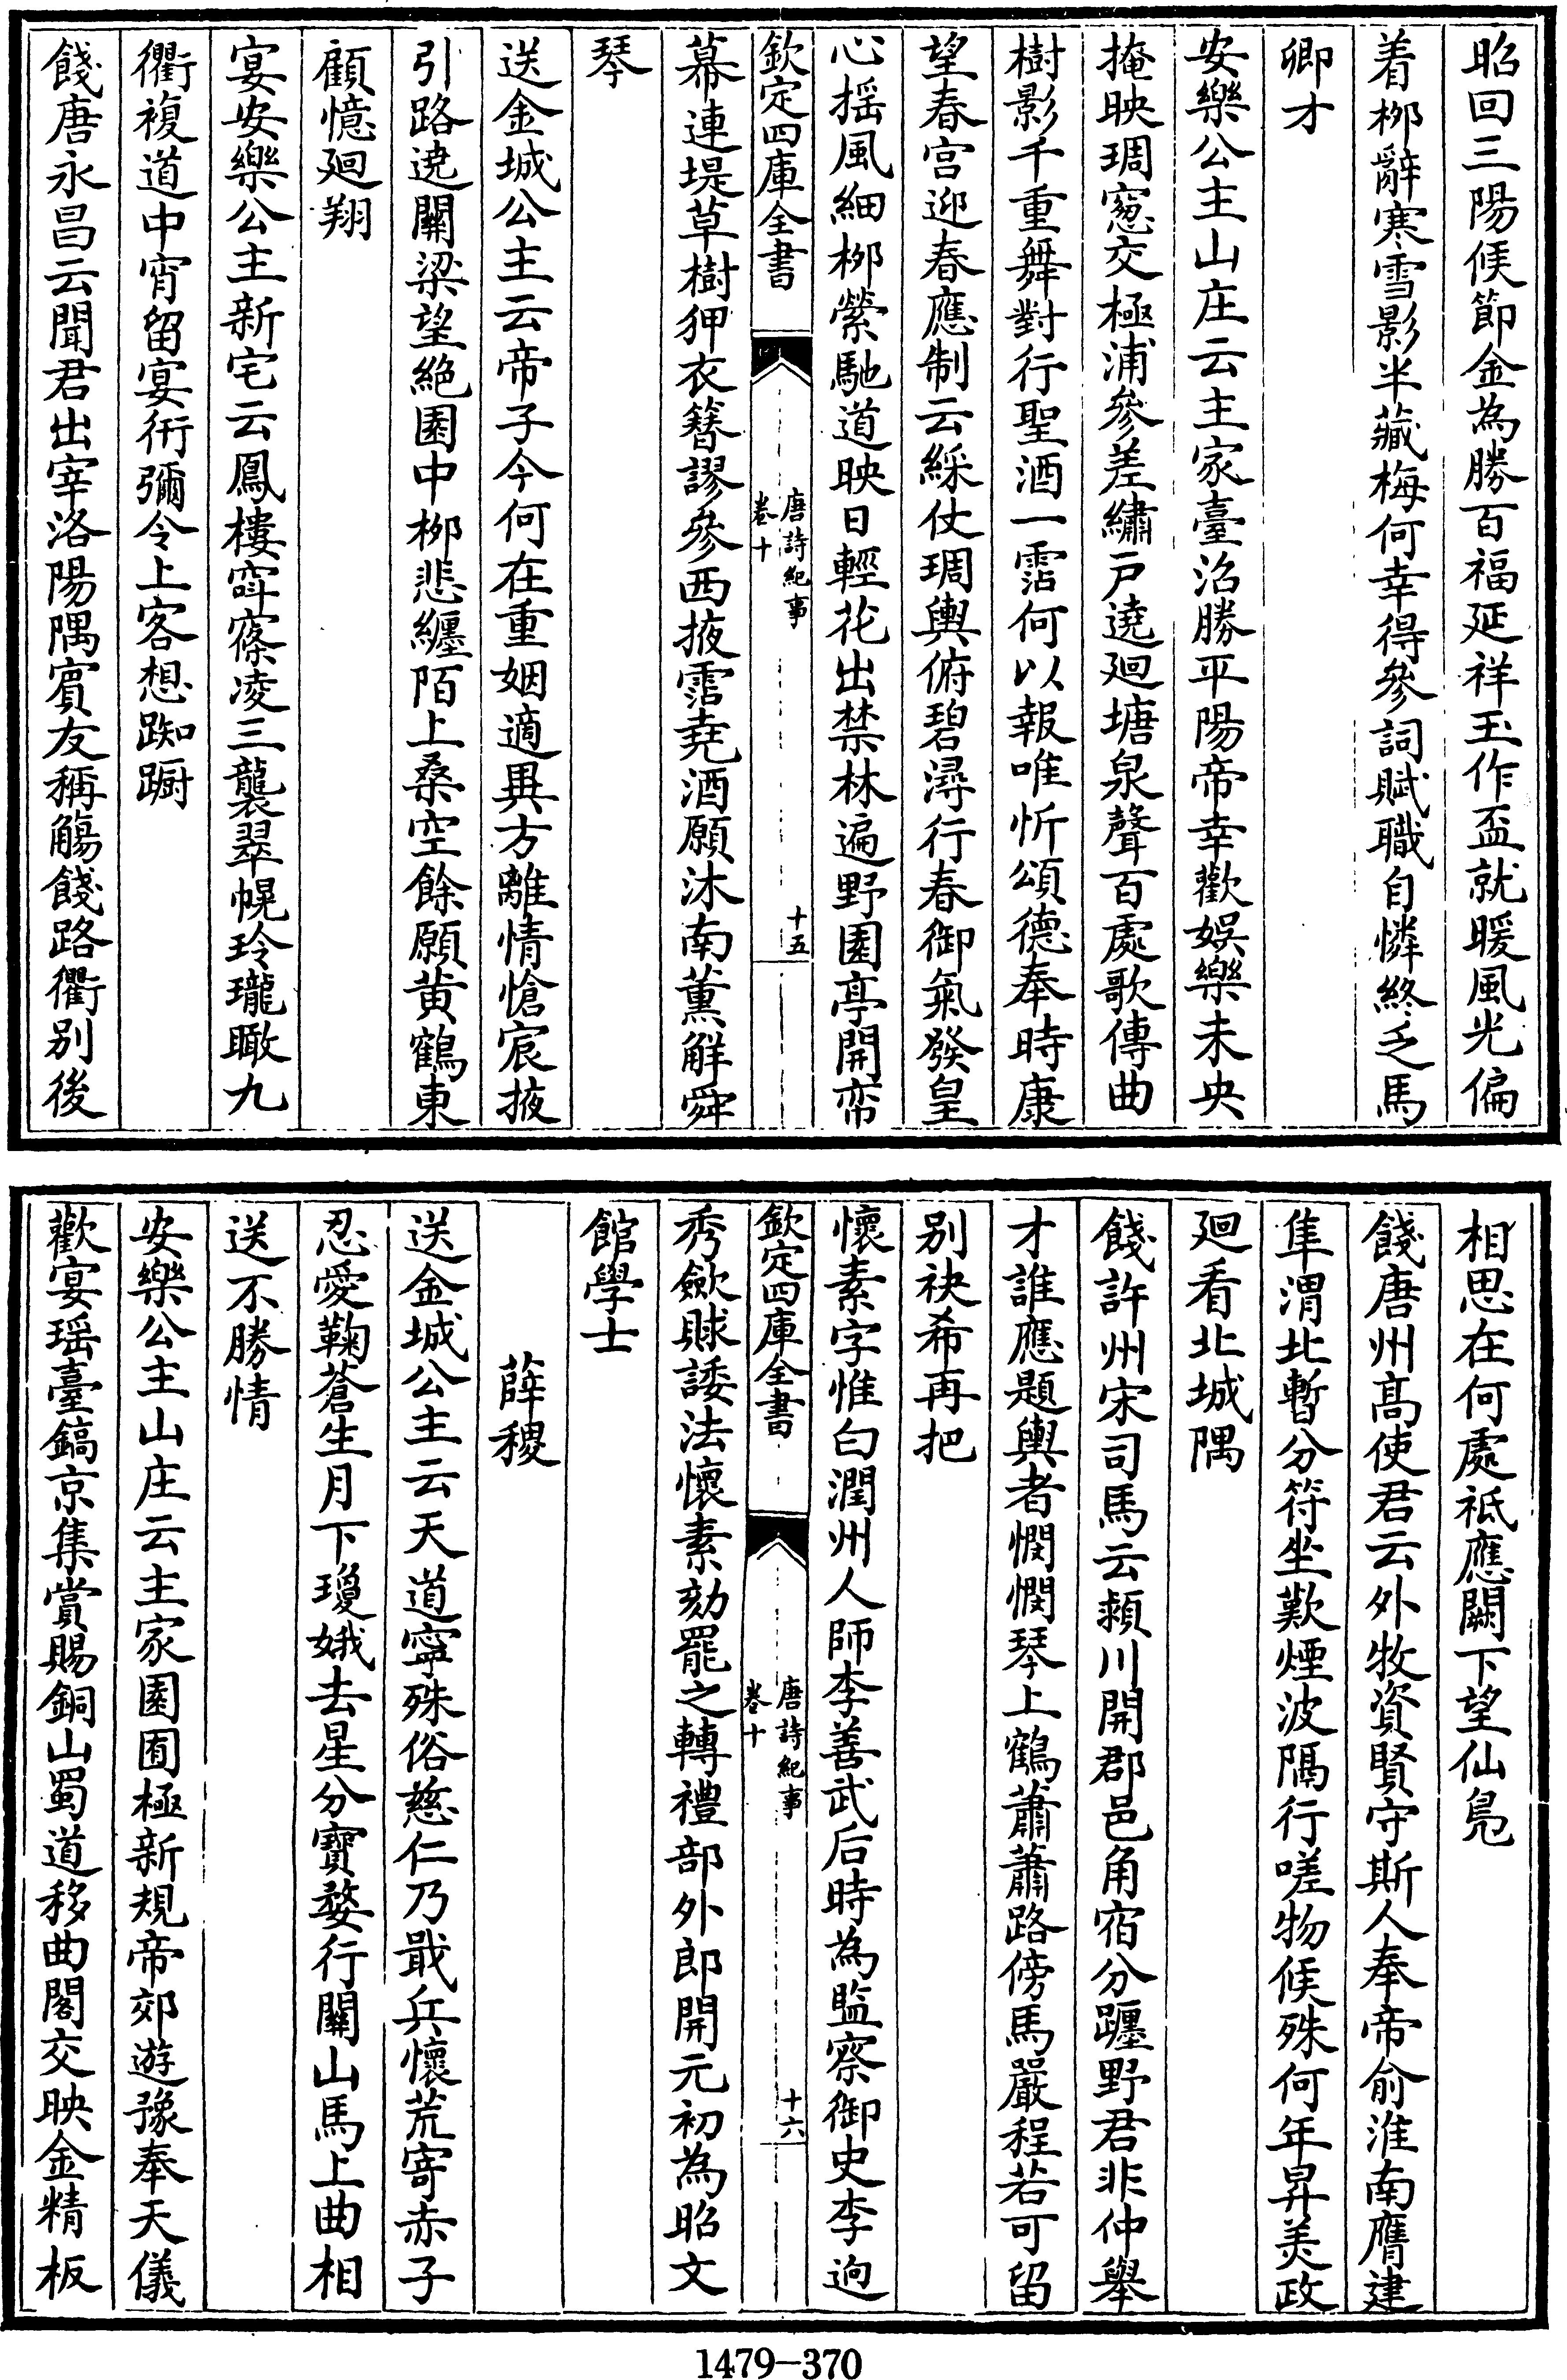 昭回三陽候節金為勝百福延祥玉作盃就暖風光偏
着栁辭寒雪影半藏梅何幸得參詞賦職自憐終乏馬
卿才
安樂公主山庄云主家臺沼勝平陽帝幸歡娯樂未央
掩映琱窻交極浦參差繡戸遶廻塘泉聲百處歌傳曲
樹影千重舞對行聖酒一霑何以報唯忻頌德奉時康
望春宫迎春應制云綵仗琱輿俯碧潯行春御氣發皇
心揺風細栁縈馳道映日輕花出禁林遍野園亭開帟
欽定四庫全書
唐詩紀事
卷十
十五
幕連堤草樹狎衣簪謬參西掖霑堯酒願沐南薫解舜
琴
送金城公主云帝子今何在重姻適異方離情愴宸掖
引路遶關梁望絶園中栁悲纏陌上桑空餘願黄鶴東
顧憶廻翔
宴安樂公主新宅云鳳樓窣㝫凌三襲翠幌玲瓏瞰九
衢複道中宵留宴衎彌令上客想踟蹰
餞唐永昌云聞君出宰洛陽隅賓友稱觴餞路衢别後
相思在何處祗應闕下望仙鳧
餞唐州髙使君云外牧資賢守斯人奉帝俞淮南膺建
隼渭北暫分符坐歎煙波隔行嗟物候殊何年昇美政
廻看北城隅
餞許州宋司馬云潁川開郡邑角宿分躔野君非仲舉
才誰應題輿者憫憫琴上鶴蕭蕭路傍馬嚴程若可留
别袂希再把
懷素字惟白潤州人師李善武后時為監察御史李逈
欽定四庫全書
唐詩紀事
卷十
十六
秀斂賕諉法懷素劾罷之轉禮部外郎開元初為昭文
館學士
薛稷
送金城公主云天道寧殊俗慈仁乃戢兵懷荒寄赤子
忍愛鞠蒼生月下瓊娥去星分寳婺行關山馬上曲相
送不勝情
安樂公主山庄云主家園囿極新規帝郊遊豫奉天儀
歡宴瑶臺鎬京集賞賜銅山蜀道移曲閣交映金精板
1479-370